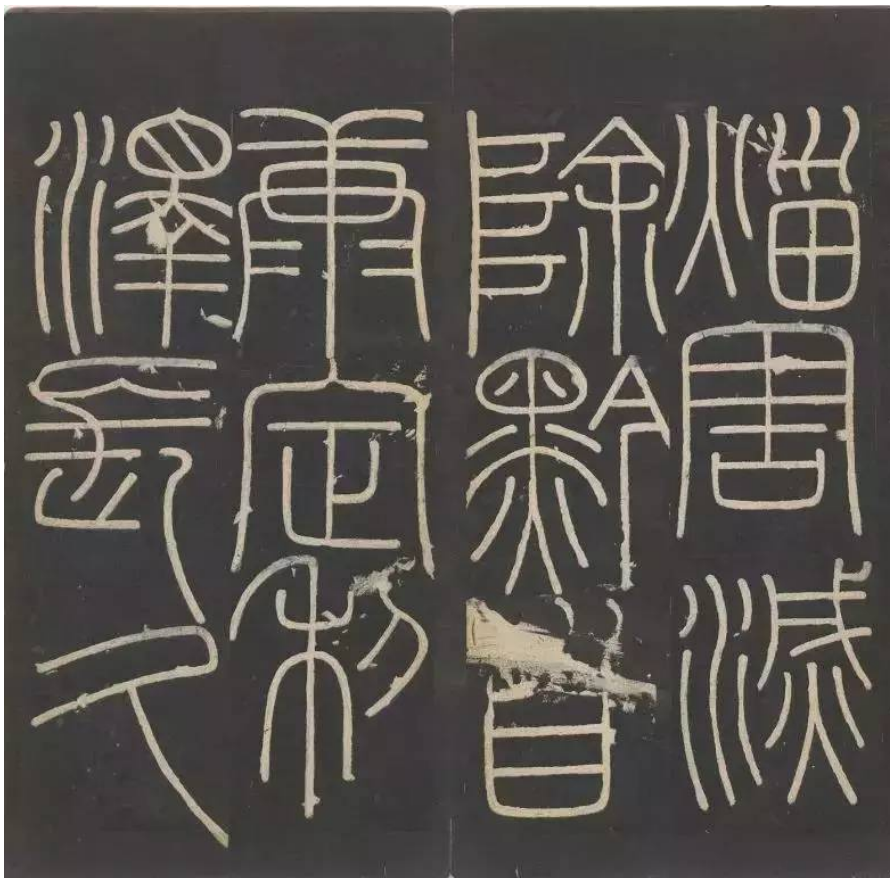 災害滅
除黔首
康定利
澤長久